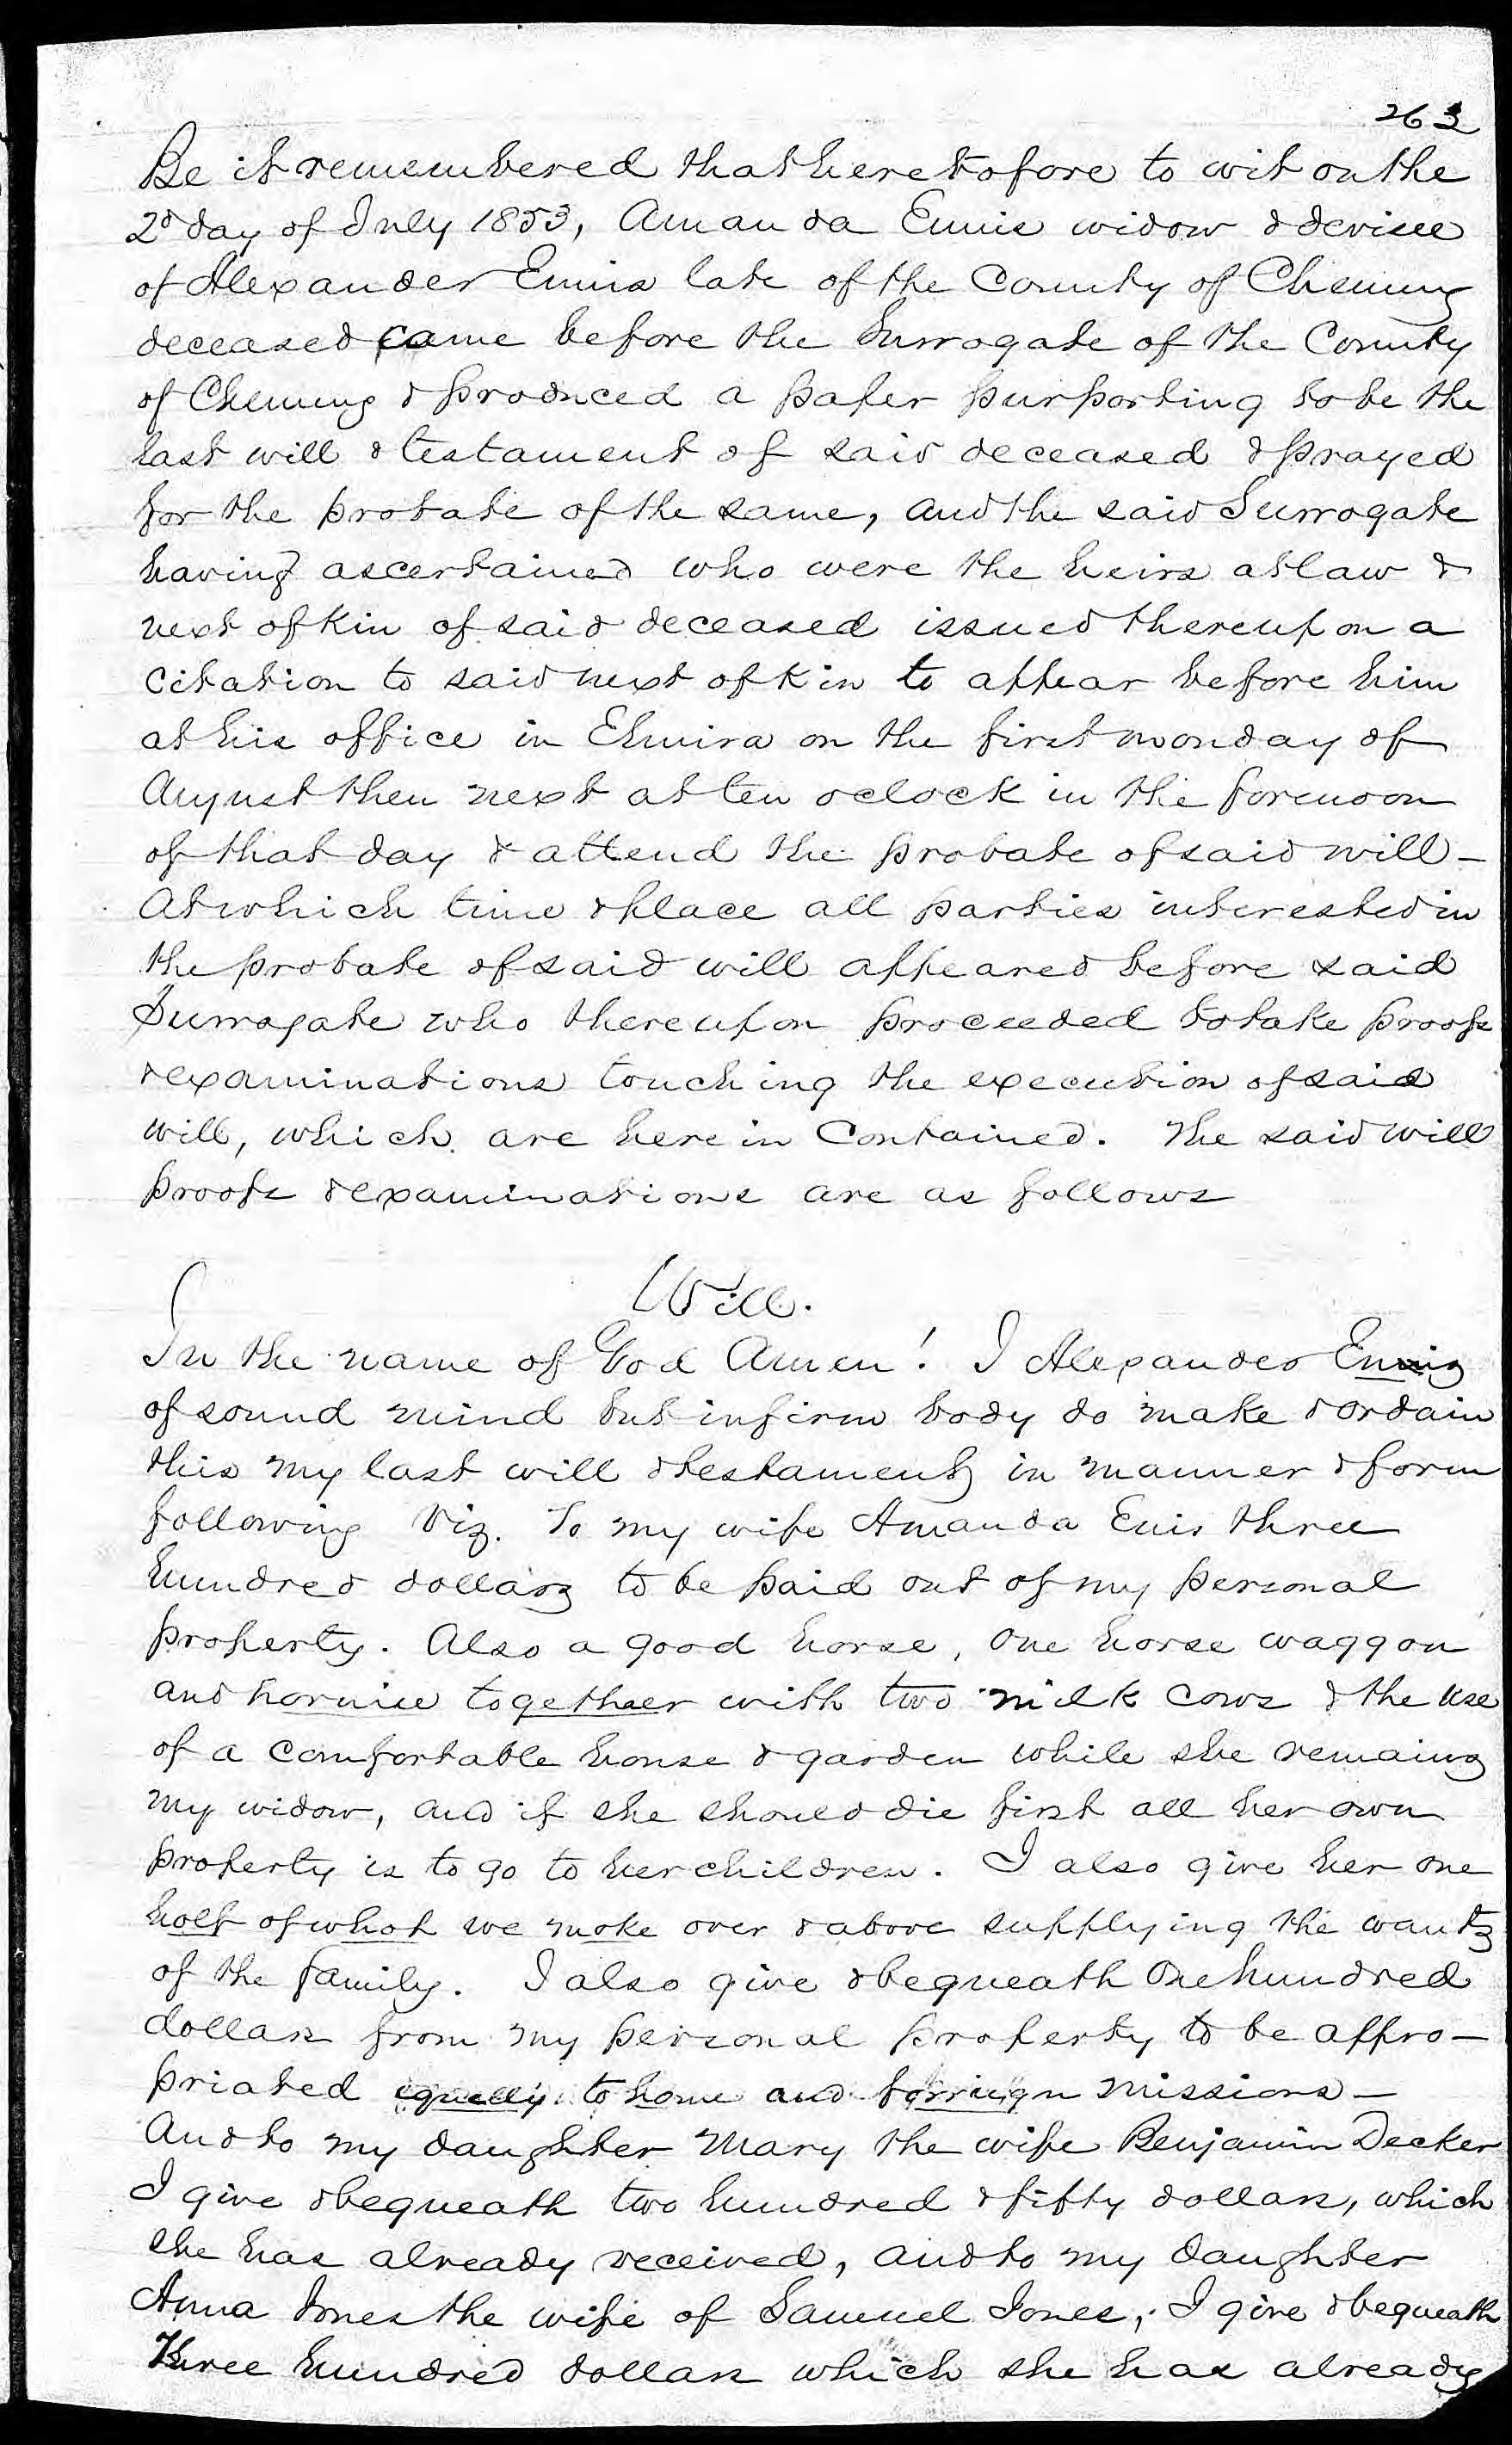 263
Be it remembered that heretofore to wit on the
2d day of July 1853, Amanda Ennis widow & devisee
of Alexander Ennis late of the County of Chemung
deceased came before the Surrogate of the County
of Chemung & produced a paper purporting to be the
last will & testament of said deceased & prayed
for the probate of the same, and the said Surrogate
having ascertained who were the heirs at law &
next of kin of said deceased issued thereupon a
citation to said next of kin to appear before him
at his office in Elmira on the first monday of
August then next at ten oclock in the forenoon
of that day & attend the probate of said will –
At which time & place all parties interested in
the probate of said will appeared before said
Surrogate who thereupon proceeded to take proofs
& examinations touching the execution of said
will, which are herein contained. The said will
proofs & examinations are as follows
Will.
In the name of God Amen! I Alexander Ennis
of sound mind but infirm body do make & ordain
this my last will & testament in manner & form
following Viz. To my wife Amanda Enis three
hundred dollars to be paid out of my personal
property. Also a good horse, one horse waggon
and harnise together with two milk cows & the use
of a comfortable house & garden while she remains
my widow, and if she should die first all her own
property is to go to her children. I also give her one
holf of whot we moke over & above supplying the wants
of the family. I also give & bequeath one hundred
dollars from my personal property to be appro–
priated equelly to home and forriegn missions –
And to my daughter Mary the wife Benjamin Decker
I give & bequeath two hundred & fifty dollars, which
she has already received, and to my daughter
Anna Jones the wife of Samuel Jones, I give & bequeath
three hundred dollars which she has already